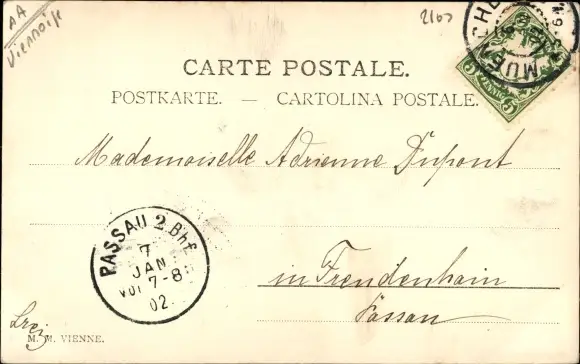 AA
Viennoise
2107
MUENCHEN
5 PFENNIG 5
CARTE POSTALE.
POSTKARTE. — CARTOLINA POSTALE.
Mademoiselle Adrienne Dupont
PASSAU 2 Bhf.
7
JAN
Vor 7-8
02.
in Freudenhain
Passau
M. M. VIENNE.